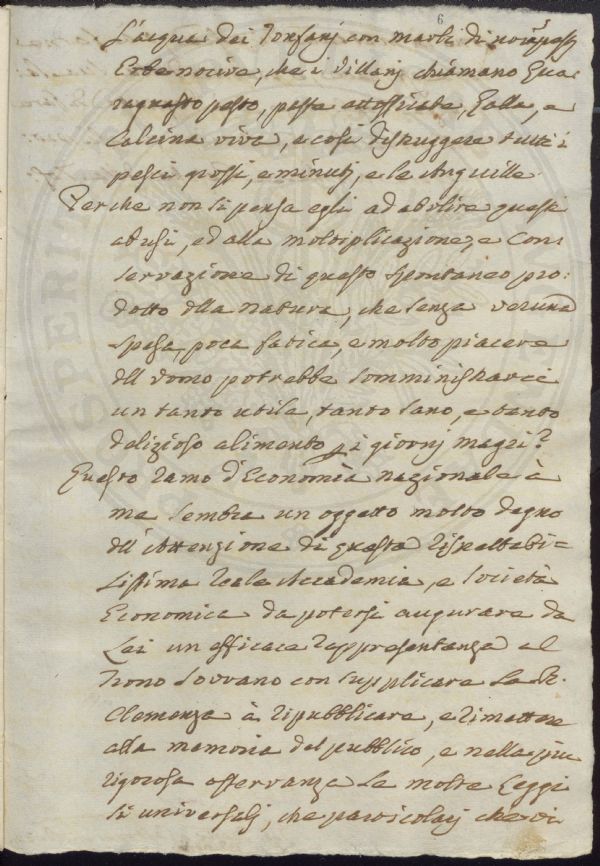 6
L'acqua dei Tonfani con martli di
Erbe nocive, che i Villanj chiamano Gua-
raguasto pesto, pasta attossicata, Galla, e
Calcina viva, e così distruggere tutti i
pesci grossi, e minutj, e le Anguille.
Perche non si pensa egli ad abolire questi
abusi, ed alla moltiplicazione, e Con-
servazione di questo spontaneo pro-
dotto dlla natura, che senza veruna
spesa, poca fatica, e molto piacere
dll'Uomo potrebbe somministrarci
un tanto utile, tanto sano, e tanto
delizioso alimento pi giornj magri?
Questo ramo d'Economia nazionale à
me sembra un oggetto molto degno
dll'Attenzione di questa rispettabi=
lissima Reale Accademia, e Società
Economica da potersi augurare da
Lei un efficace rappresentanza al
trono Sovrano con supplicare La R.
Clemenza à ripubblicare, e rimettere
alla memoria del pubblico, e nella più
rigorosa osservanza Le molte Leggi
sì universalj, che particolarj che vi